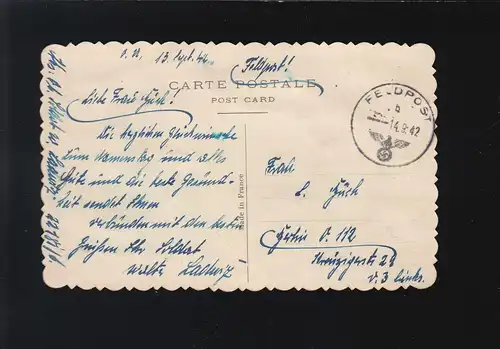 O. U., 13. Sept. 42.
Feldpost!
CARTE POSTALE
POST CARD
FELDPOST
b
14.9.42
Liebe Frau Gück!
Die herzlichen Glückwünsche
zum Namenstag und alles
Gute und die beste Gesund-
heit sendet Ihnen
verbunden mit den besten
Grüßen Ihr Soldat
Walter Ladwig
Made in France
Frau
L. Gück
Berlin O. 112
Kreuzigerstr. 28
v. 3 links.